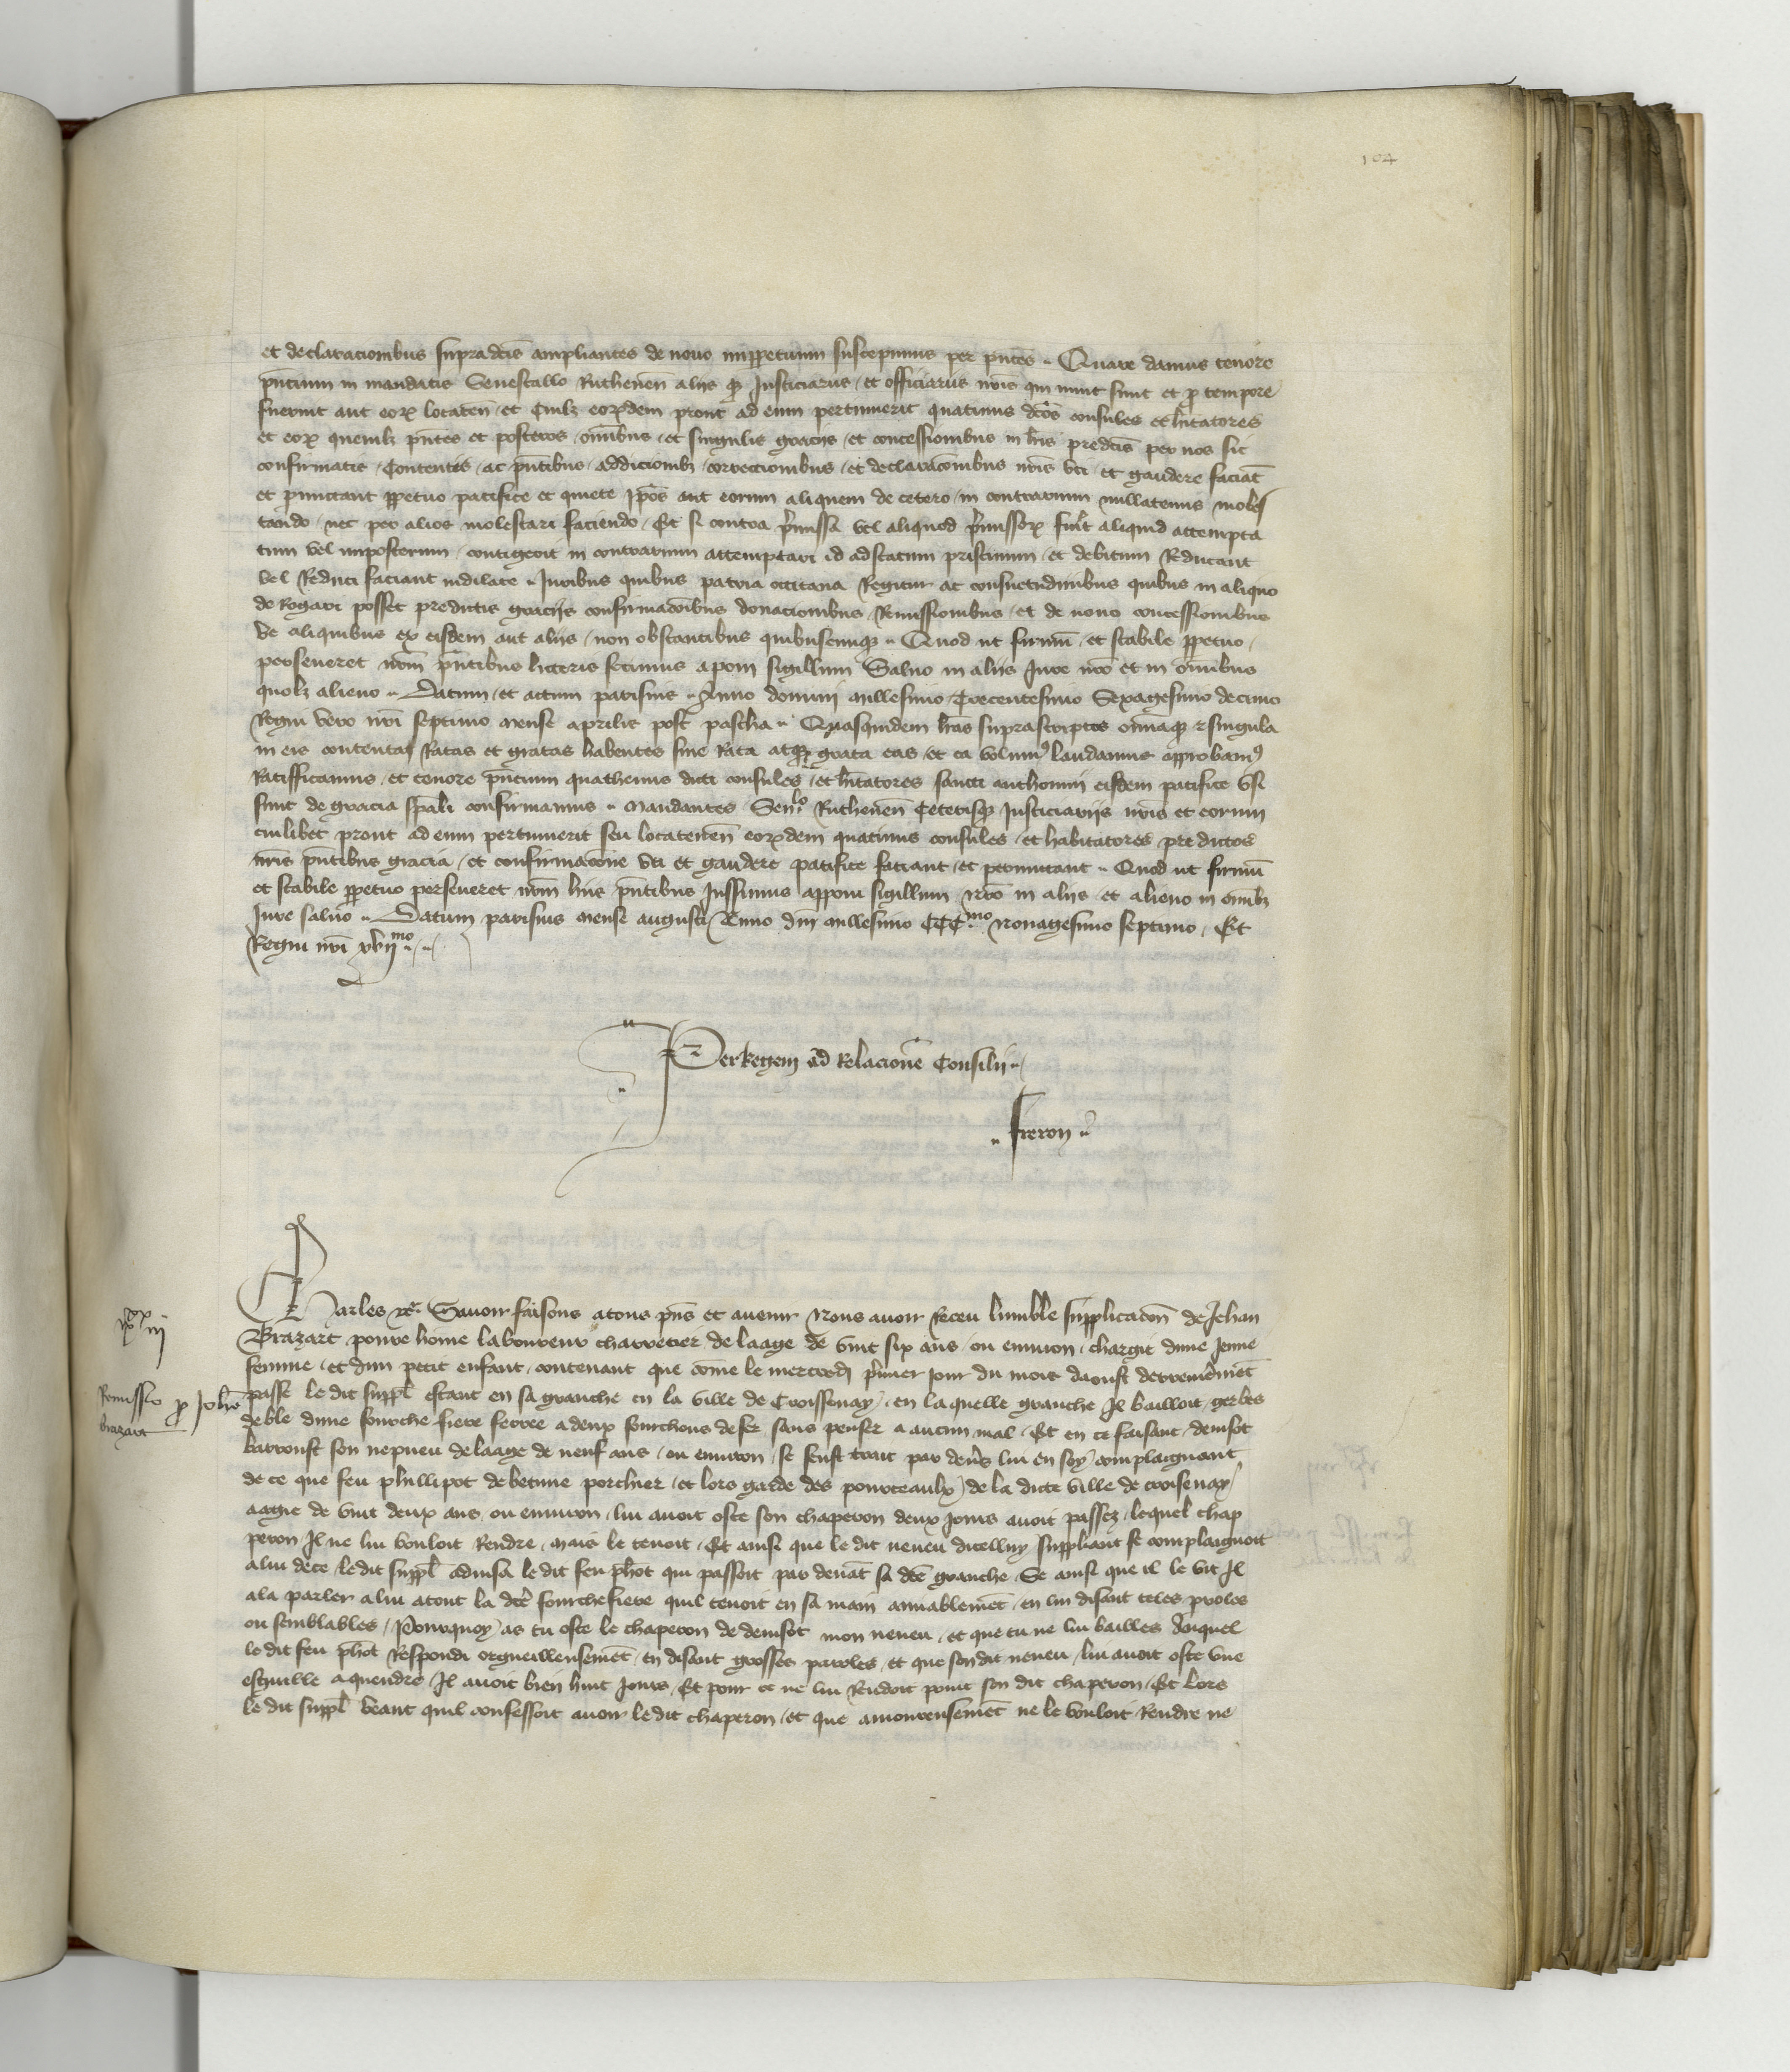 104
et declaracionibus supradcis ampliantes de novo imppetuum suscepimus per pntes .. Quare damus tenore
pntium in mandatis Senescallo Ruthenen aliis q Justiciariis et officiariis nris qui nunc sunt et p tempore
fuerint aut eor locaten et Cuilz eordem prout ad eum pertinuerit quatinus dcos consules et hitatores
et eor quemlz pntes et posteros omibus et singulis graciis et concessionibus in lris predcis per nos sic
confirmatis Contentis ac pntibus addicionibz correccionibus et declaracoibus nris uti et gaudere faciat
et pmittant ppetuo pacifice et quiete ipos aut eorum aliquem de cetero in contrarium nullatenus moles
tando nec per alios molestari faciendo Et si contra pmissa vel aliquod pmissor fuit aliquid attempta
tum vel imposterum contigerit in contrarium attemptari id ad statum pristinum et debitum Reducant
vel Reduci faciant indilate .. Juribus quibus patria occitana Regitur ac consuetudinibus quibus in aliquo
derogari posset predictis graciis confirmacoibus donacionibus Remissionibus et de novo concessionibus
ve aliquibus ex eisdem aut aliis non obstantibus quibuscumq .. Quod ut firmu et stabile ppetuo
perseveret nrm pntibus litteris fecimus aponi sigillum Salvo in aliis Jure nro et in omibus
quolz alieno .. Datum et actum parisius .. Anno domini millesimo Trecentesimo Sexagesimo decimo
Regni vero nri septimo mense aprilis post pascha .. Quasquidem lras suprascriptas omiaq et singula
in eis contenta Ratas et gratas habentes sive Rata atq grata eas et ea volum laudamus approbam
Ratifficamus et tenore pntium quathenus dicti consules et hitatores sancti anthonini eisdem pacifice usi
sunt de gracia spali confirmamus .. Mandantes Senlo Ruthenen Ceterisq Justiciariis nris et eorum
cuilibet prout ad eum pertinuerit seu locatenen eordem quatinus consules et habitatores predictos
nris pntibus gracia et confirmacone uti et gaudere pacifice faciant et permittant .. Quod ut firmu
et stabile ppetuo perseveret nrm lris pntibus Jussimus apponi sigillum nro in aliis et alieno in omibz
Jure salvo .. Datum parisius mense augusti Anno dni millesimo CCCmo nonagesimo septimo Et
Regni nri xvijmo
Per Regem ad Relacione Consilii ..
.. Freron ..
Charles etc Savoir faisons a tous pns et avenir Nous avoir Receu lumble supplicacon de Jehan
Brazart povre home laboureur charretier de laage de vint six ans ou environ chargie dune Jenne
femme et dun petit enfant contenant que come le mercredi pmier jour du mois daoust derrenierement
Remissio p Johe
Brazart
passe le dit suppl estant en sa granche en la ville de Croissenay en la quelle granche Il bailloit gerbes
de ble dune fourche fiere ferree a deux fourchons de fer sans penser a aucun mal Et en ce faisant denisot
barroust son nepveu de laage de neuf ans ou environ se feust trait par devs lui en soy complaignant
de ce que feu phillipot de betune porchier et lors garde des pourceaulx de la dicte ville de croisenay
aagie de vint deux ans ou environ lui avoit oste son chaperon deux jours avoit passez lequel chap
peron Il ne lui vouloit Rendre mais le tenoit Et ainsi que le dit neveu dicelluy suppliant se complaignoit
a lui de ce le dit suppl advisa le dit feu phot qui passoit par devat sa dce granche Se ainsi que il le vit Il
ala parler a lui atout la dce fourchefiere quil tenoit en sa main amiablemet en lui disant teles proles
ou semblables Pourquoy as tu oste le chaperon de denisot mon neveu et que tu ne lui bailles Auquel
le dit feu phot Respondi orgueilleusemet en disant grosses paroles et que son dit neveu lui avoit oste une
esguille a quendre Il avoit bien huit jours Et pour ce ne lui Rendoit point son dit chaperon Et lors
le dit suppl veant quil confessoit avoir le dit chaperon et que amoureusemet ne le vouloit Rendre ne